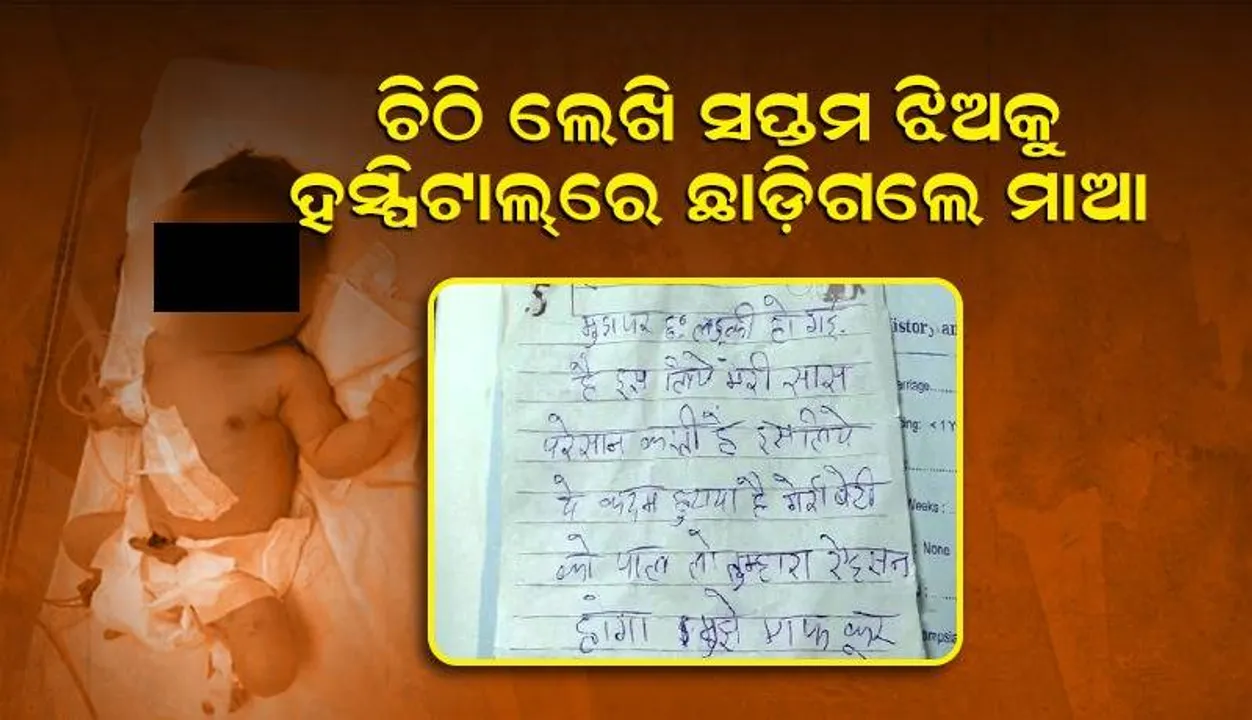 ଚିଠି ଲେଖି ସପ୍ତମ ଝିଅକୁ
ହସ୍ପିଟାଲ୍‌ରେ ଛାଡ଼ିଗଲେ ମାଆ
.5
मुझ पर छः लड़की हो गई.
है इस लिये मेरी सास
परेसान करती है इसलिये
ये कदम हुठाया है मेरी बेटी
को पाल लो तुम्हारा ऐहसान
होगा मुझे माफ कर
istory, an
arriage......
ing: < 1 Y
Weeks :
: None
ompsia